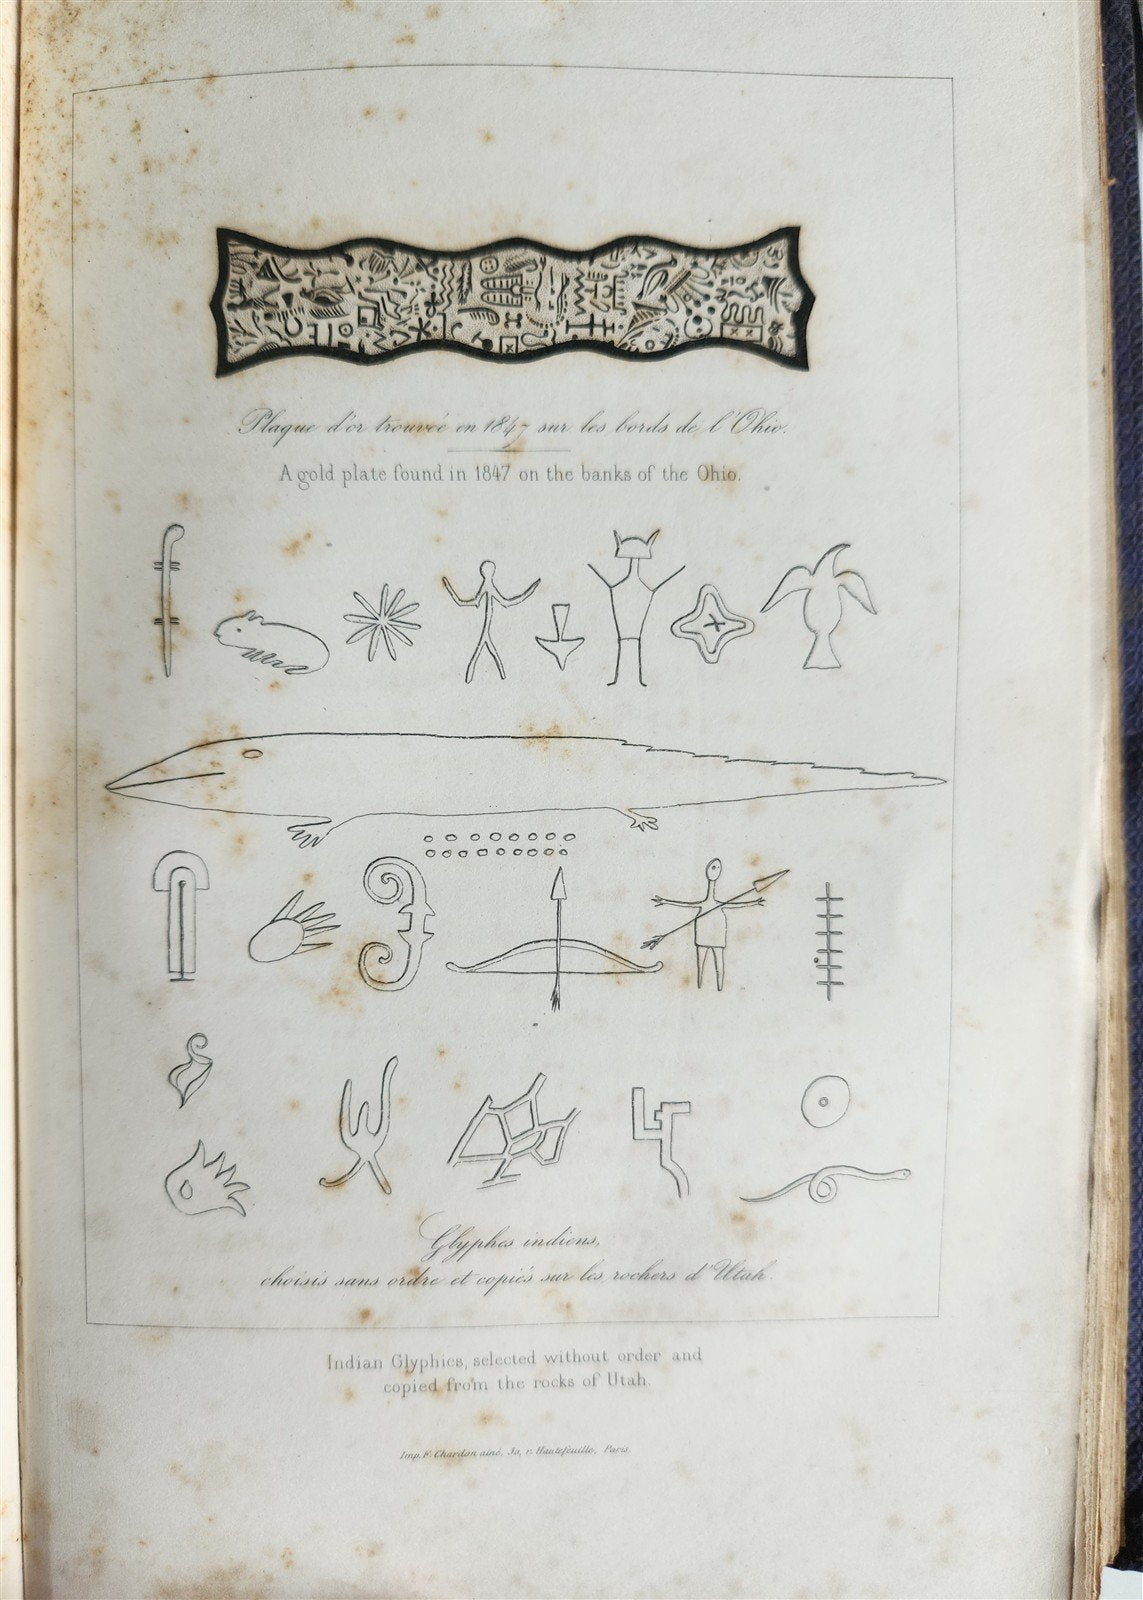 Plaque d'or trouvée en 1847 sur les bords de l'Ohio.
A gold plate found in 1847 on the banks of the Ohio.
Glyphes indiens,
choisis sans ordre et copiés sur les rochers d'Utah.
Indian Glyphics, selected without order and
copied from the rocks of Utah.
Imp. F. Chardon ainé, 30, r. Hautefeuille, Paris.